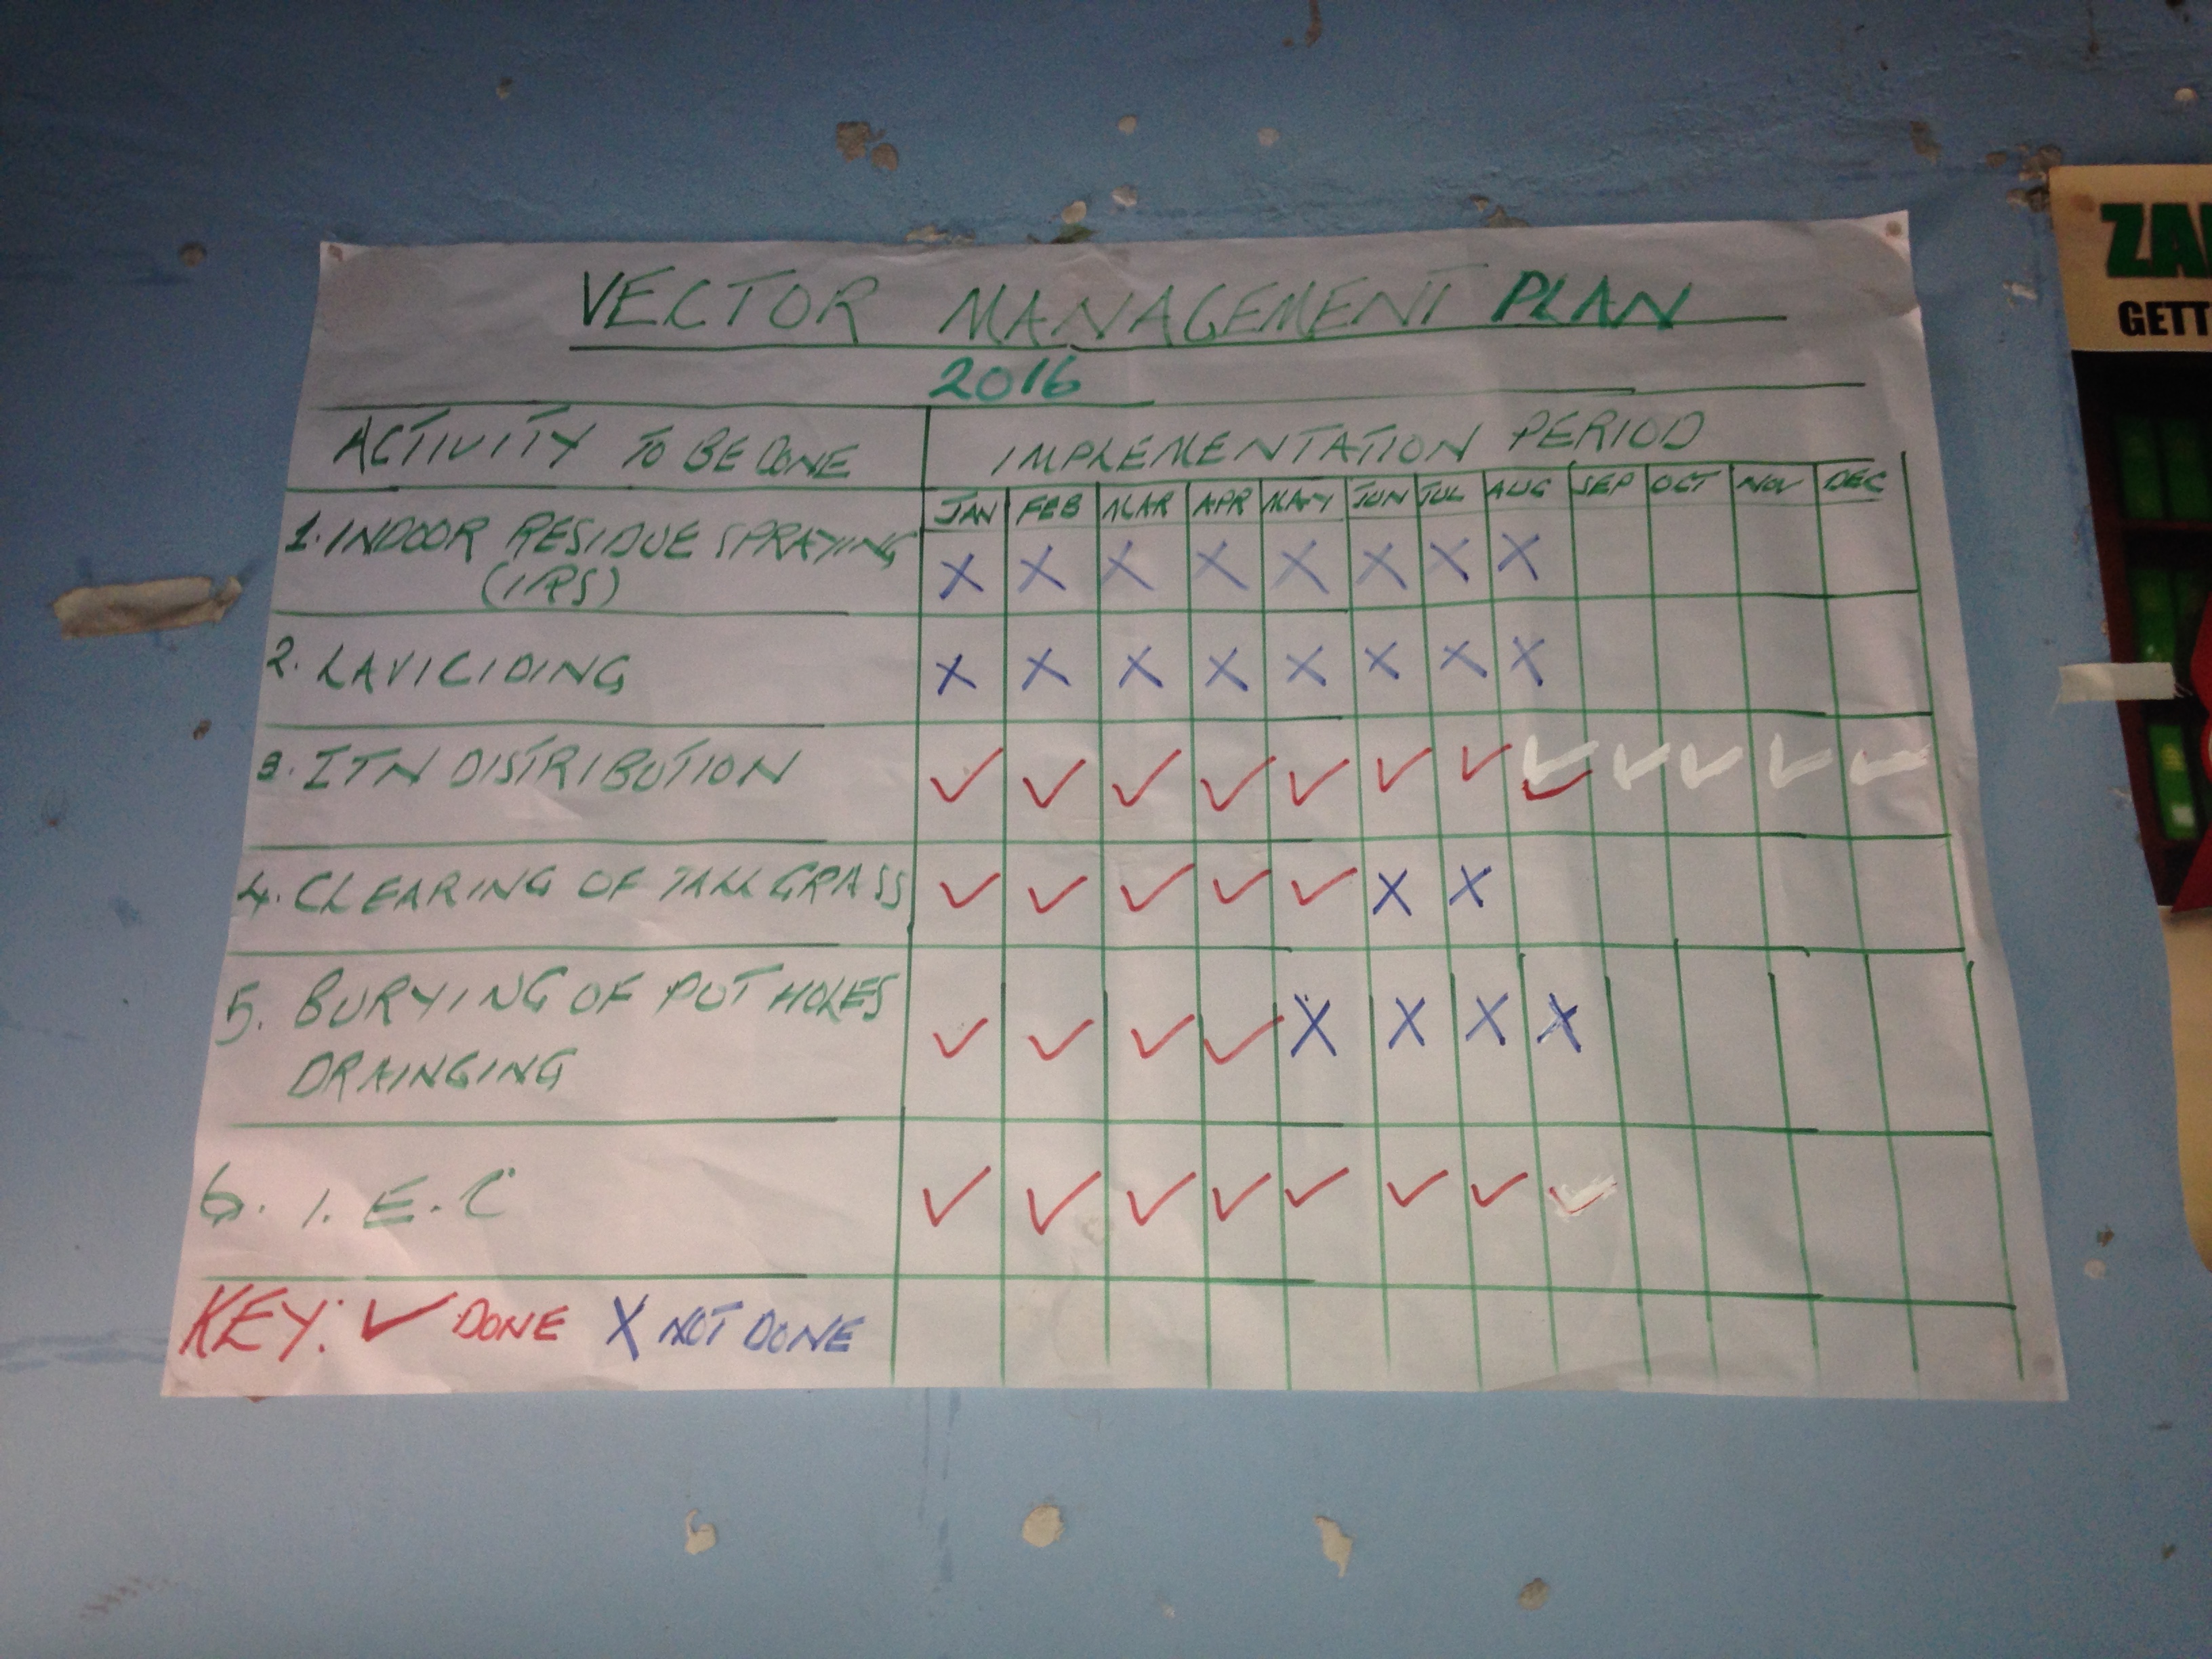 VECTOR MANAGEMENT PLAN
2016
ACTIVITY TO BE DONE
IMPLEMENTATION PERIOD
JAN FEB MAR APR MAY JUN JUL AUG SEP OCT NOV DEC
1. INDOOR RESIDUE SPRAYING
(IRS)
X X X X X X X X
2. LAVICIDING
X X X X X X X X
3. ITN DISTRIBUTION
✓ ✓ ✓ ✓ ✓ ✓ ✓ ✓
4. CLEARING OF TALL GRASS
✓ ✓ ✓ ✓ ✓ X X
5. BURYING OF POT HOLES
DRAINGING
✓ ✓ ✓ ✓ X X X X
6. I. E. C
✓ ✓ ✓ ✓ ✓ ✓ ✓
KEY: ✓ DONE X NOT DONE